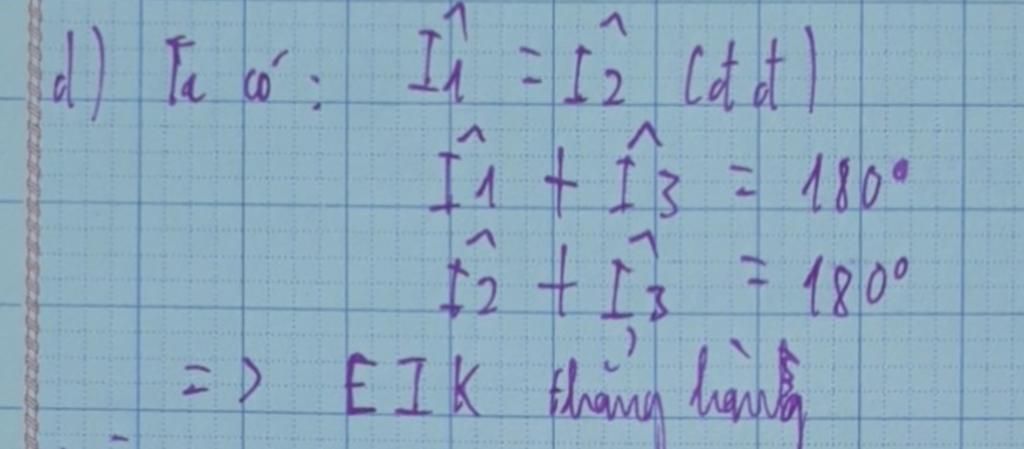 d) Ta có: Î1 = Î2 (đđ)
Î1 + Î3 = 180°
Î2 + Î3 = 180°
=> E I K thẳng hàng